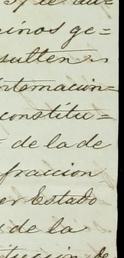 37 de au=
minos ge=
sulten
informacion=
constitu=
de la de
fraccion
er Estado
de la
titucion de